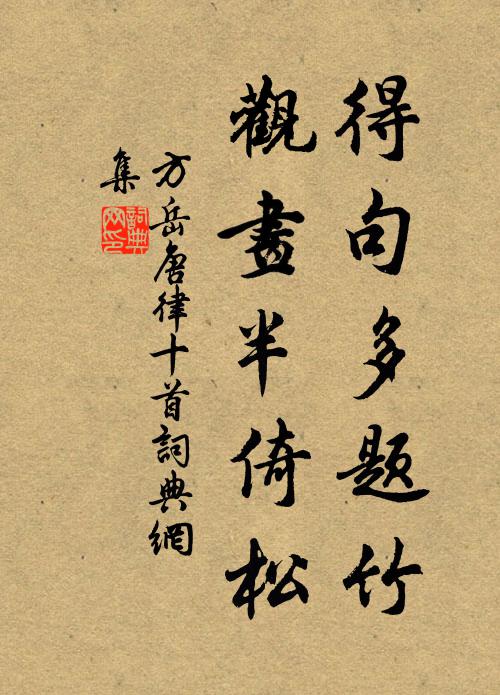 得句多題竹
觀畫半倚松
方岳唐律十首詞典網
集
詞典网印